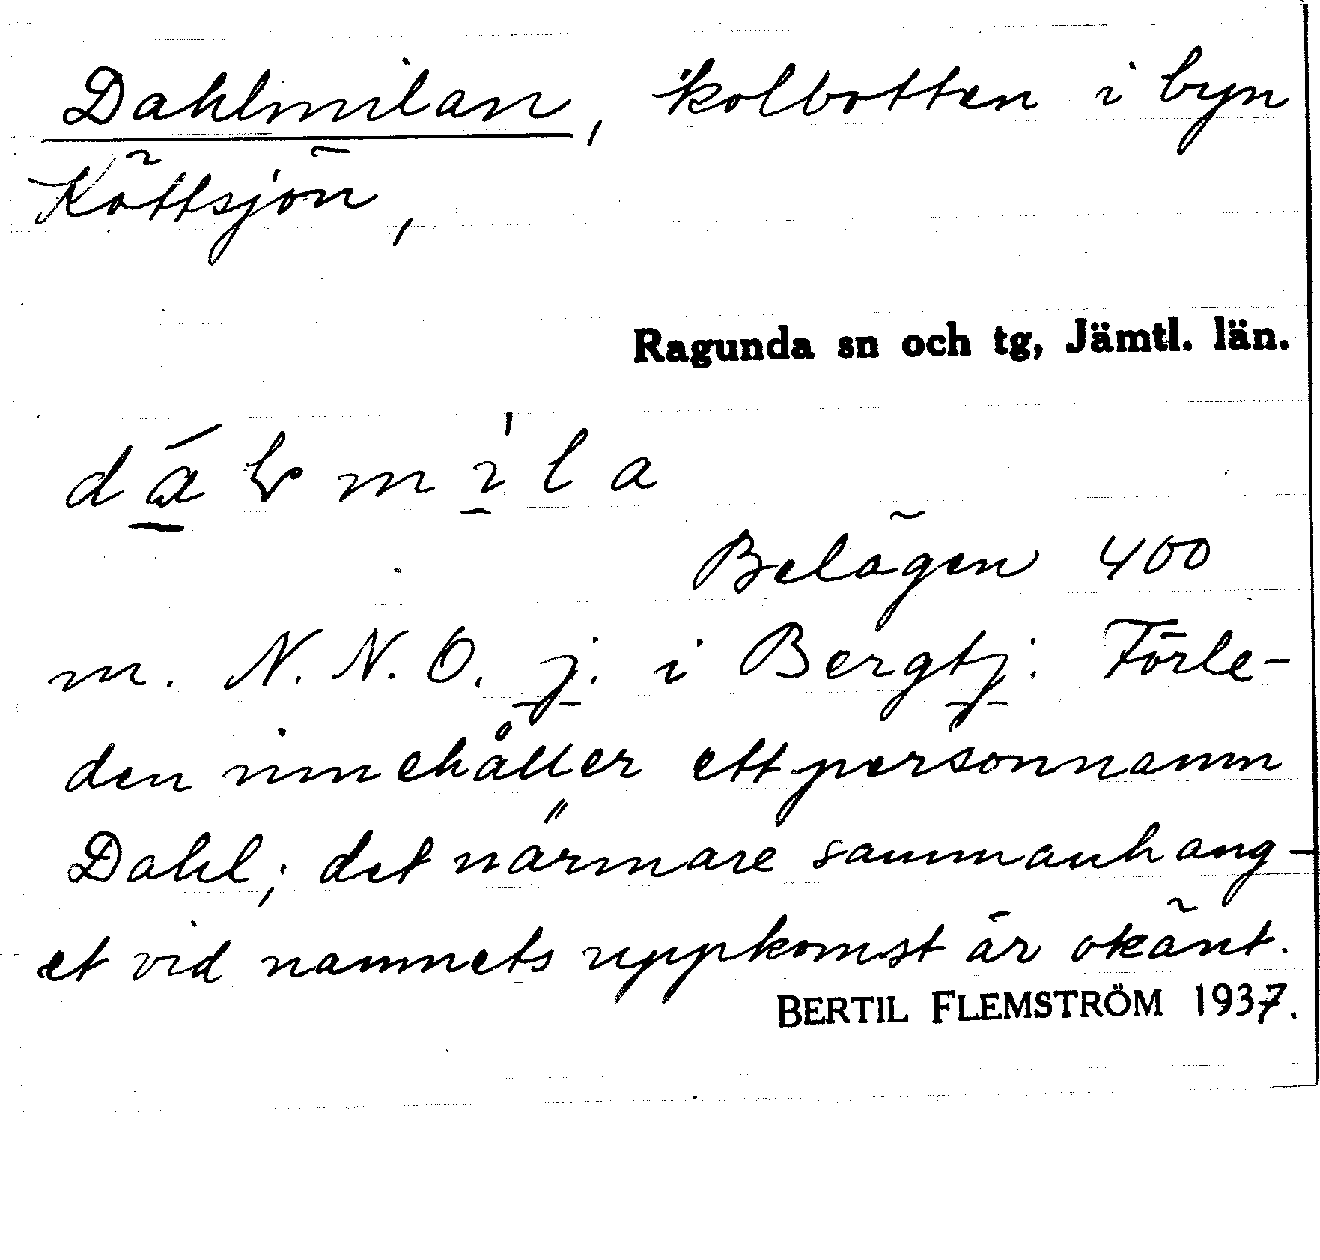 Dahlmilan, kolbotten i byn
Köttsjön,
Ragunda sn och tg, Jämtl. län.
Belägen 400
m. N.N.O. j. i Bergtj. Förle-
den innehåller ett personnamn
Dahl; det närmare sammanhang-
et vid namnets uppkomst är okänt.
BERTIL FLEMSTRÖM 1937.